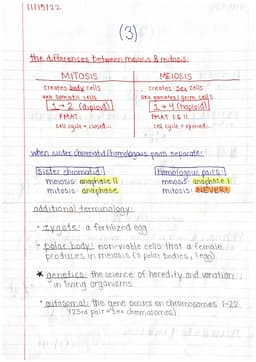 11/15/22
(3)
the differences between meiosis & mitosis:
MITOSIS MEIOSIS
creates body cells creates sex cells
aka somatic cells aka gametes/germ cells
1→2 (diploid) 1→4 (haploid)
PMAT PMAT I & II
cell cycle = closed... cell cycle = opened...
when sister chromatid/homologous pairs separate:
sister chromatid: homologous pairs:
meiosis: anaphase II meiosis: anaphase I
mitosis: anaphase mitosis: NEVER!
additional terminology:
• zygote: a fertilized egg
• polar body: non-viable cells that a female
produces in meiosis (3 polar bodies, 1 egg)
* genetics: the science of heredity and variation
in living organisms
• autosomal: the gene occurs on chromosomes 1-22
(23rd pair = sex chromosomes)